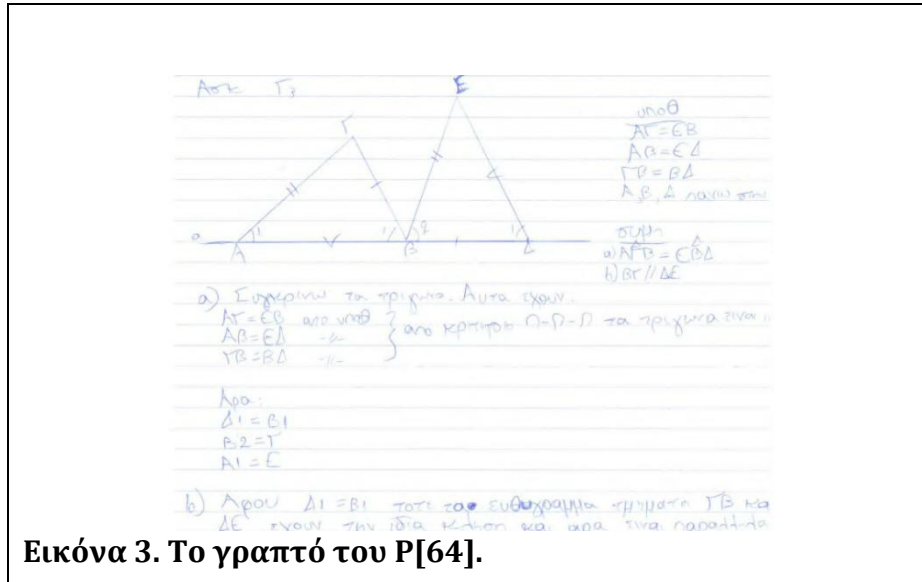 Ασκ Γ3
Ε
Γ
Α
1
1
Β
2
1
Δ
υποθ
ΑΓ=ΕΒ
ΑΒ=ΕΔ
ΓΒ=ΒΔ
Α,Β,Δ πανω στην
συμπ
α) ΑΓΒ=ΕΒΔ
b) ΒΓ//ΔΕ
α) Συγκρινω τα τριγωνα. Αυτα εχουν.
ΑΓ=ΕΒ απο υποθ
ΑΒ=ΕΔ -//-
ΓΒ=ΒΔ -//-
απο κριτηριο Π-Π-Π τα τριγωνα ειναι
Αρα:
Δ1=Β1
Β2=Γ
Α1=Ε
b) Αφου Δ1=Β1 τοτε τα ευθυγραμμα τμηματα ΓΒ και
ΔΕ εχουν την ιδια κλιση και αρα ειναι παραλληλα
Εικόνα 3. Το γραπτό του Ρ[64].